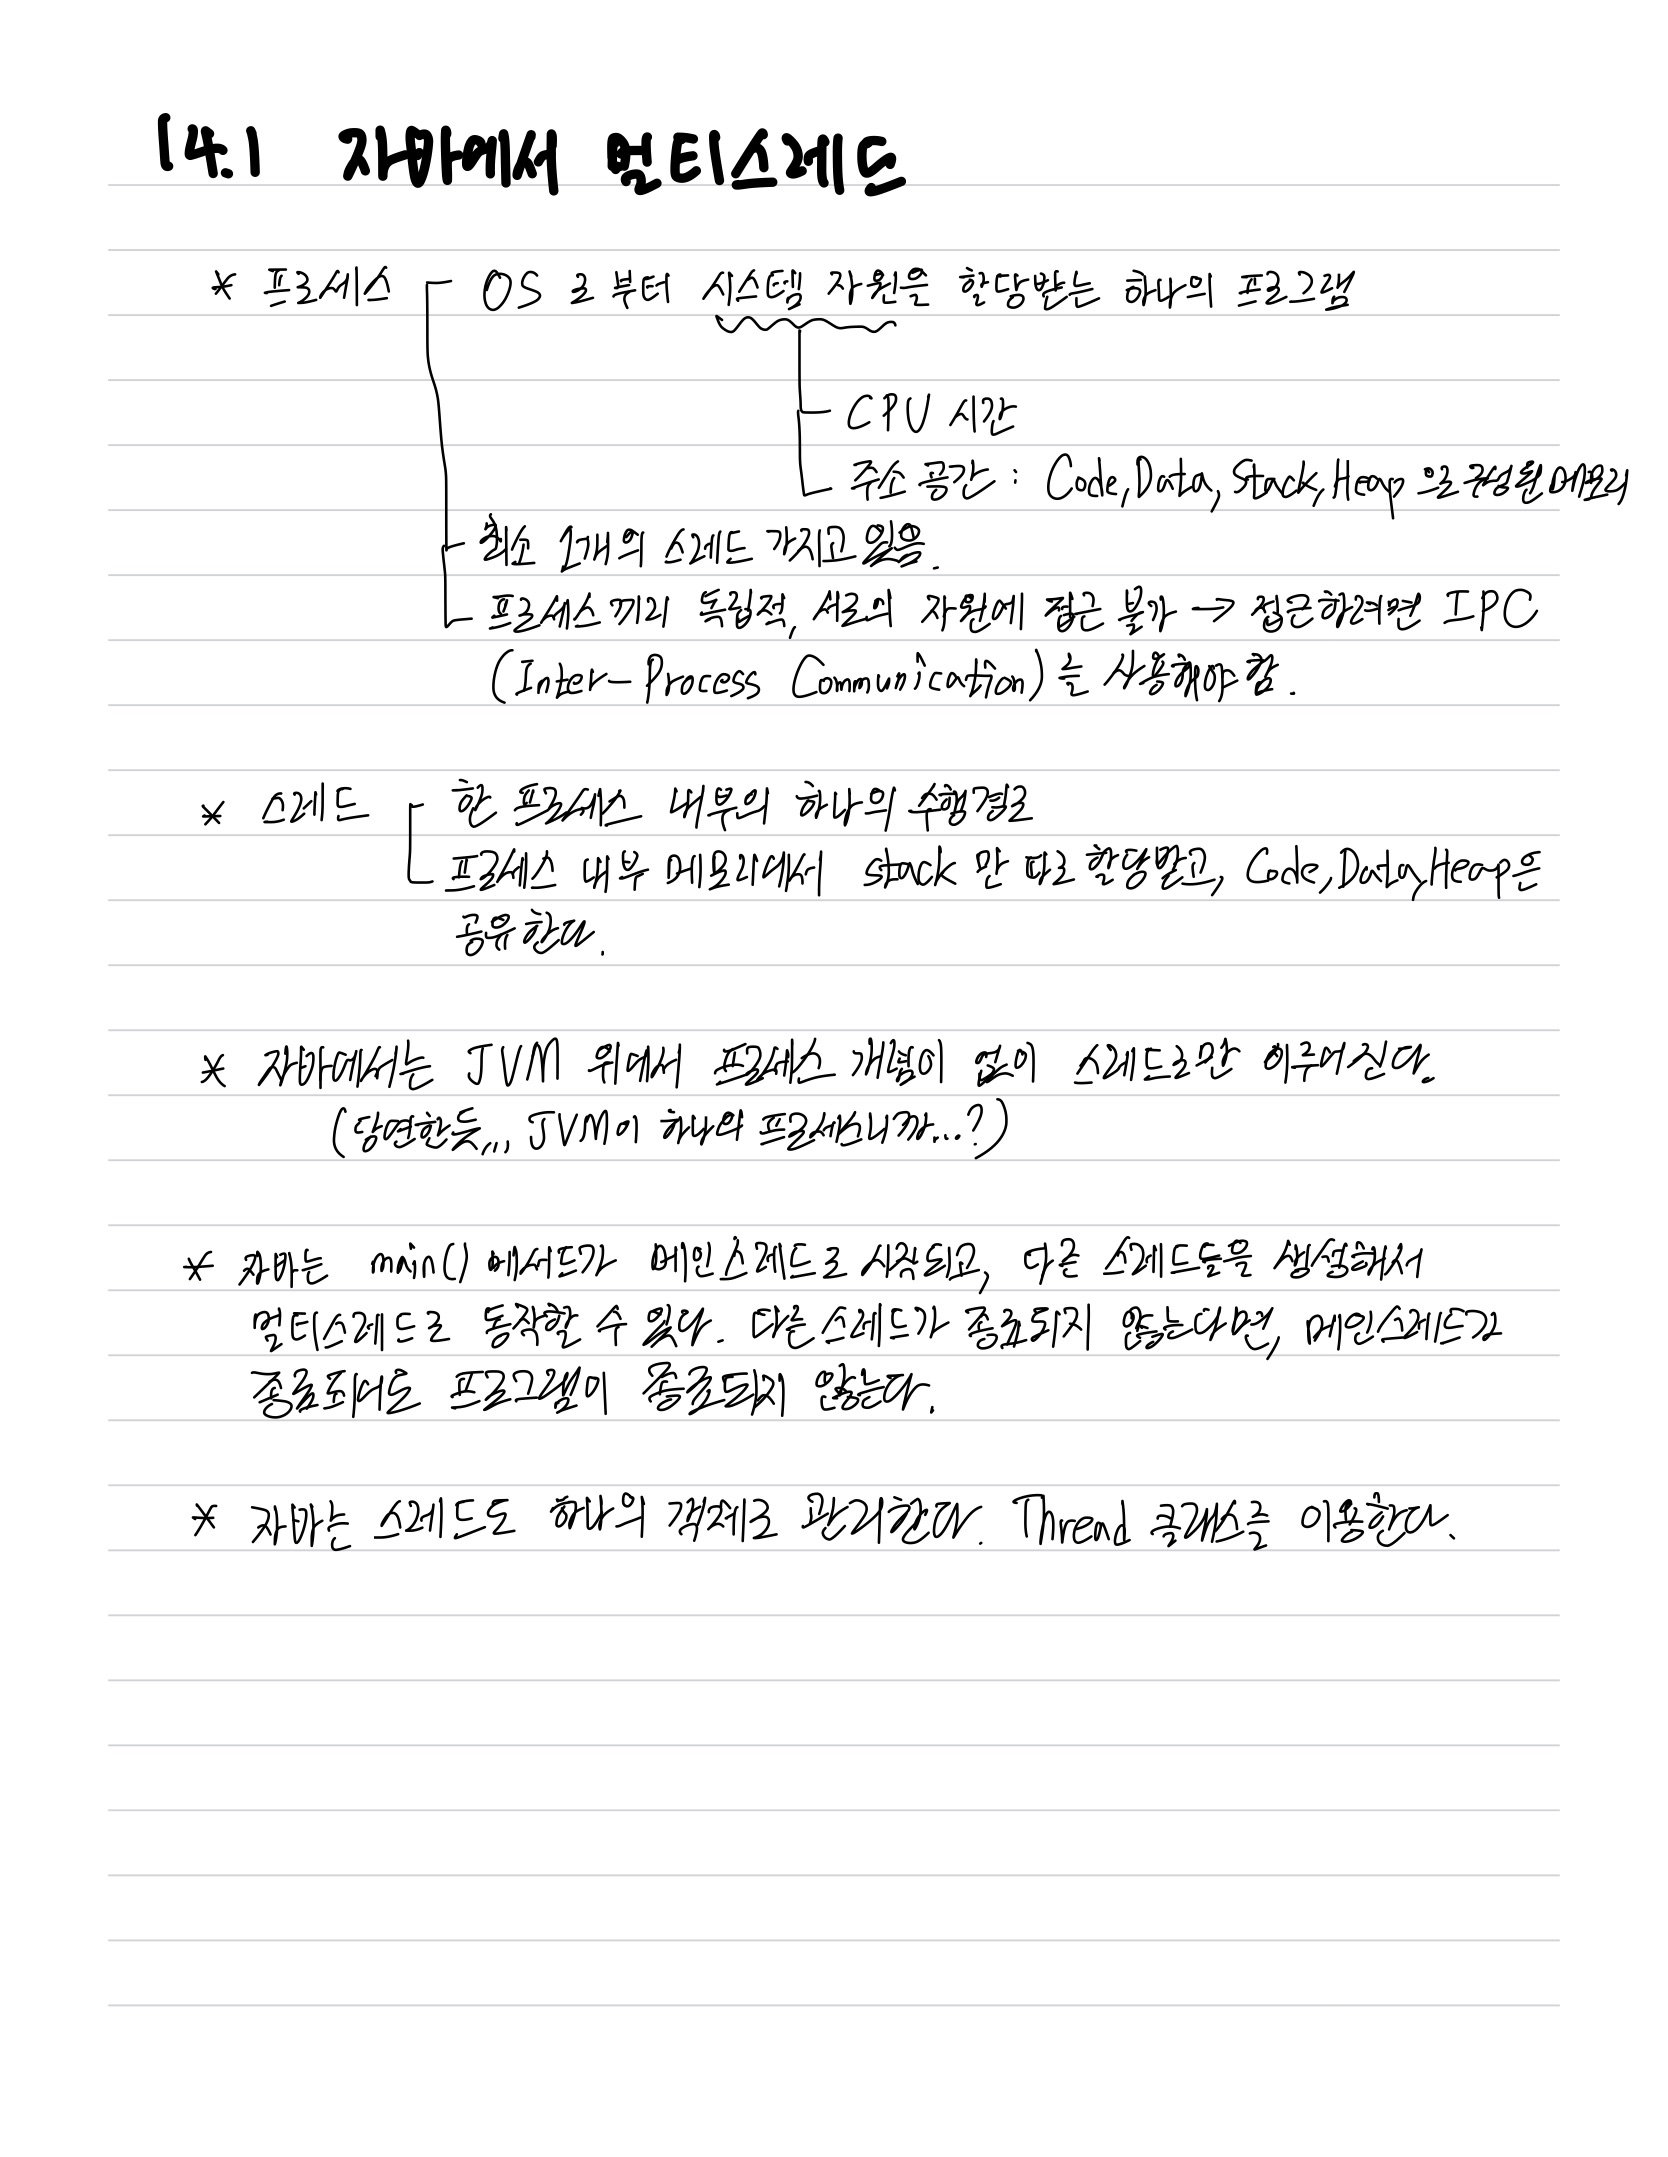 14.1 자바에서 멀티스레드
* 프로세스 OS 로부터 시스템 자원을 할당받는 하나의 프로그램
CPU 시간
주소 공간 : Code, Data, Stack, Heap 으로 구성된 메모리
최소 1개의 스레드 가지고 있음.
프로세스끼리 독립적, 서로의 자원에 접근 불가 → 접근하려면 IPC
(Inter-Process Communication)를 사용해야함.
* 스레드 한 프로세스 내부의 하나의 수행경로
프로세스 내부 메모리에서 stack 만 따로 할당받고, Code, Data, Heap은
공유한다.
* 자바에서는 JVM 위에서 프로세스 개념이 없이 스레드로만 이루어진다.
(당연한듯,,, JVM이 하나의 프로세스니까...?)
* 자바는 main() 메서드가 메인스레드로 시작되고, 다른 스레드들을 생성해서
멀티스레드로 동작할 수 있다. 다른스레드가 종료되지 않는다면, 메인스레드가
종료되어도 프로그램이 종료되지 않는다.
* 자바는 스레드도 하나의 객체로 관리한다. Thread 클래스를 이용한다.